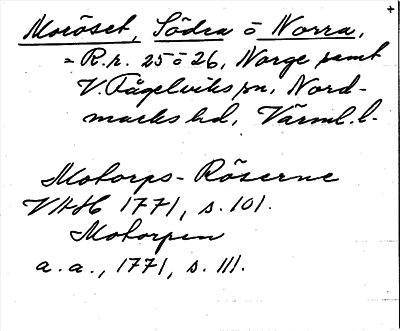 Moröset, Södra o Norra,
= R.r. 25 o 26, Norge samt
V. Fågelviks sn, Nord-
marks hd, Värml. l.
Motorps-Röserne
VAH 1771, s. 101.
Motorpen
a.a., 1771, s. 111.